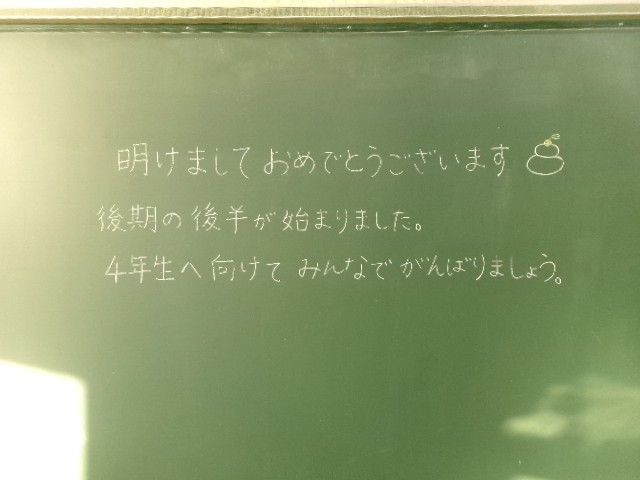 明けましておめでとうございます
後期の後半が始まりました。
4年生へ向けてみんなでがんばりましょう。